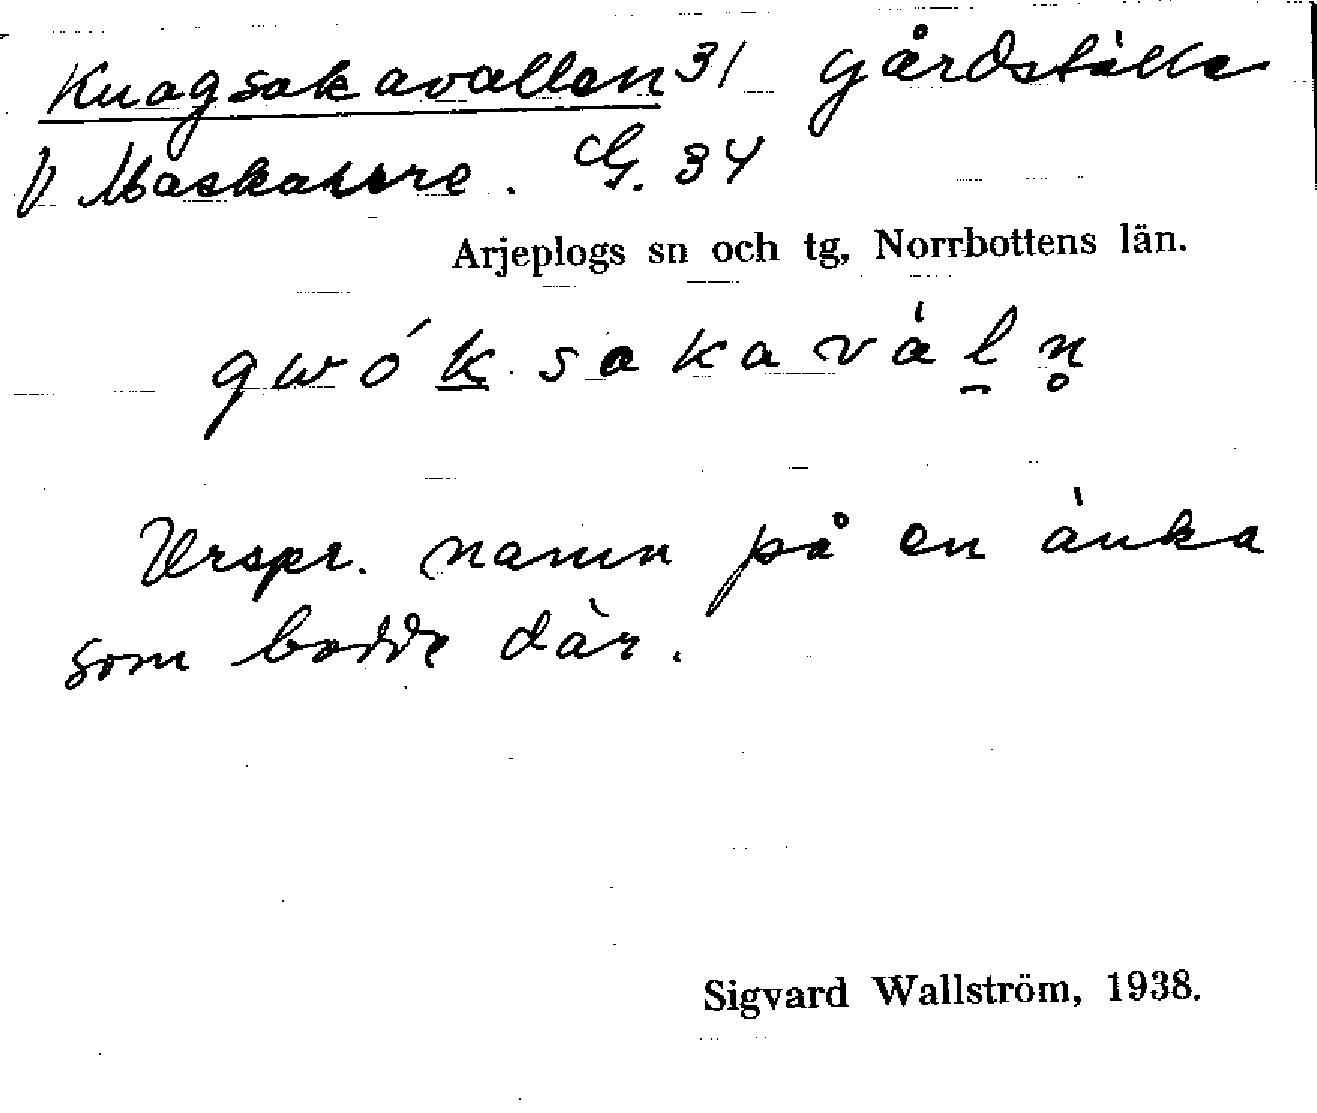 Kuogsakavallen 31 gårdställe
V Maskaure. G. 34
Arjeplogs sn och tg, Norrbottens län.
gwóksakaváln̥
Urspr. namn på en änka
som bodde där.
Sigvard Wallström, 1938.